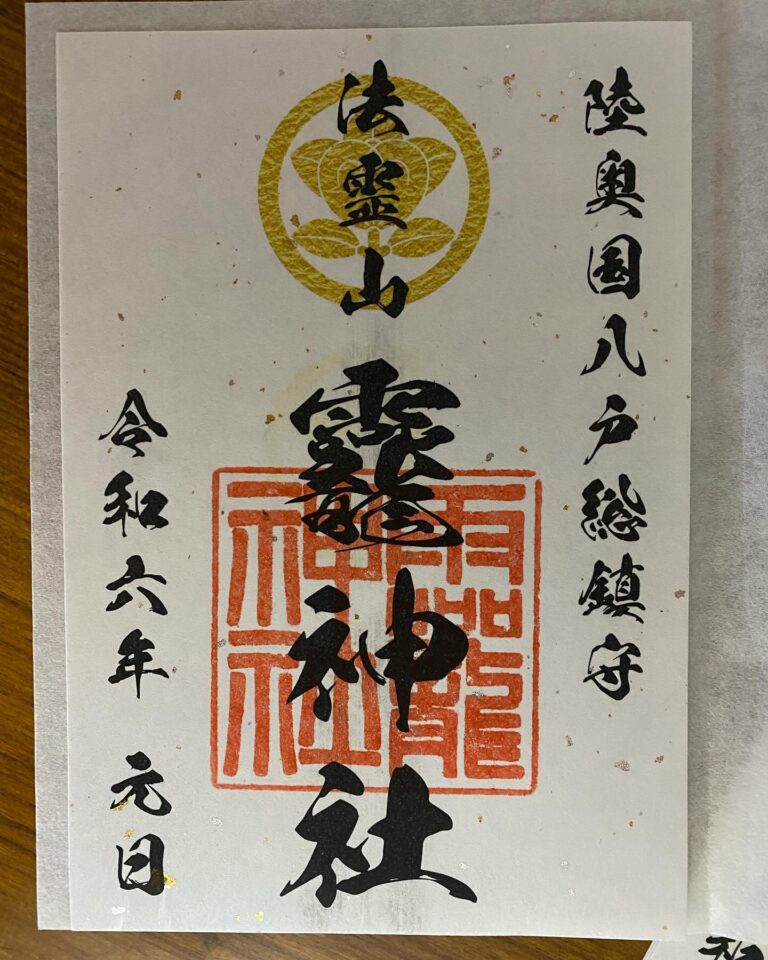 陸奥国八戸総鎮守
法霊山
龗神社
龗
神社
令和六年 元日